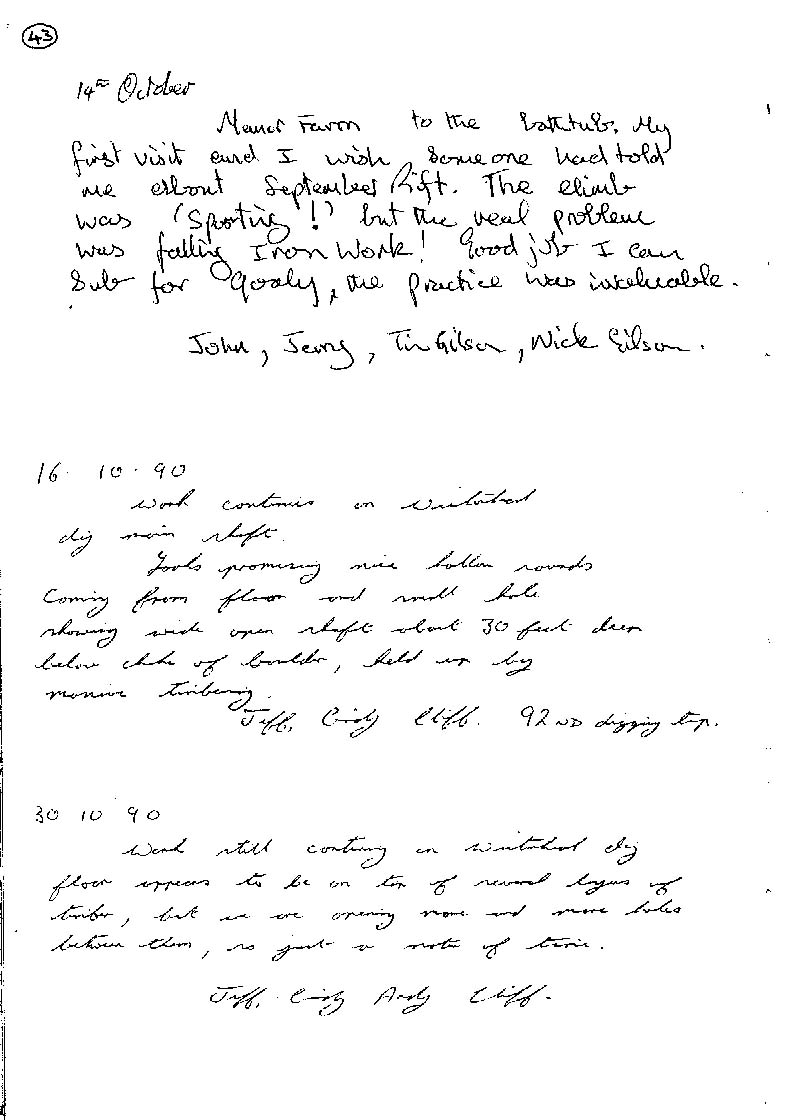 43
14th October
Manor Farm to the bathtubs. My
first visit and I wish someone had told
me about September Rift. The climb
was 'Sporting!' but the real problem
was falling Iron Work! Good job I can
Sub for Goaly, the practice was invaluable.
John, Jerry, Tim Gilson, Nick Gilson.
16. 10. 90
Work continues on
dig main shaft.
Looks promising nice hollow sounds
Coming from floor and small hole
showing wide open shaft about 30 feet deep
below choke of boulder, held up by
massive timbering.
Jeff, Cindy Cliff. 92ND digging trip.
30 10 90
Work still continuing on dig
floor appears to be on top of several layers of
timber, but we are opening more and more holes
between them, is just a matter of time.
Jeff, Cindy Andy Cliff.